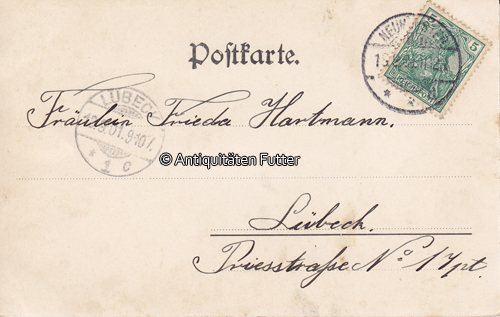 5
Postkarte.
LÜBECK
01.9-10V.
* 1 c
Fräulein Frieda Hartmann.
© Antiquitäten Futter
Lübeck.
Priesstraße No 17pt.